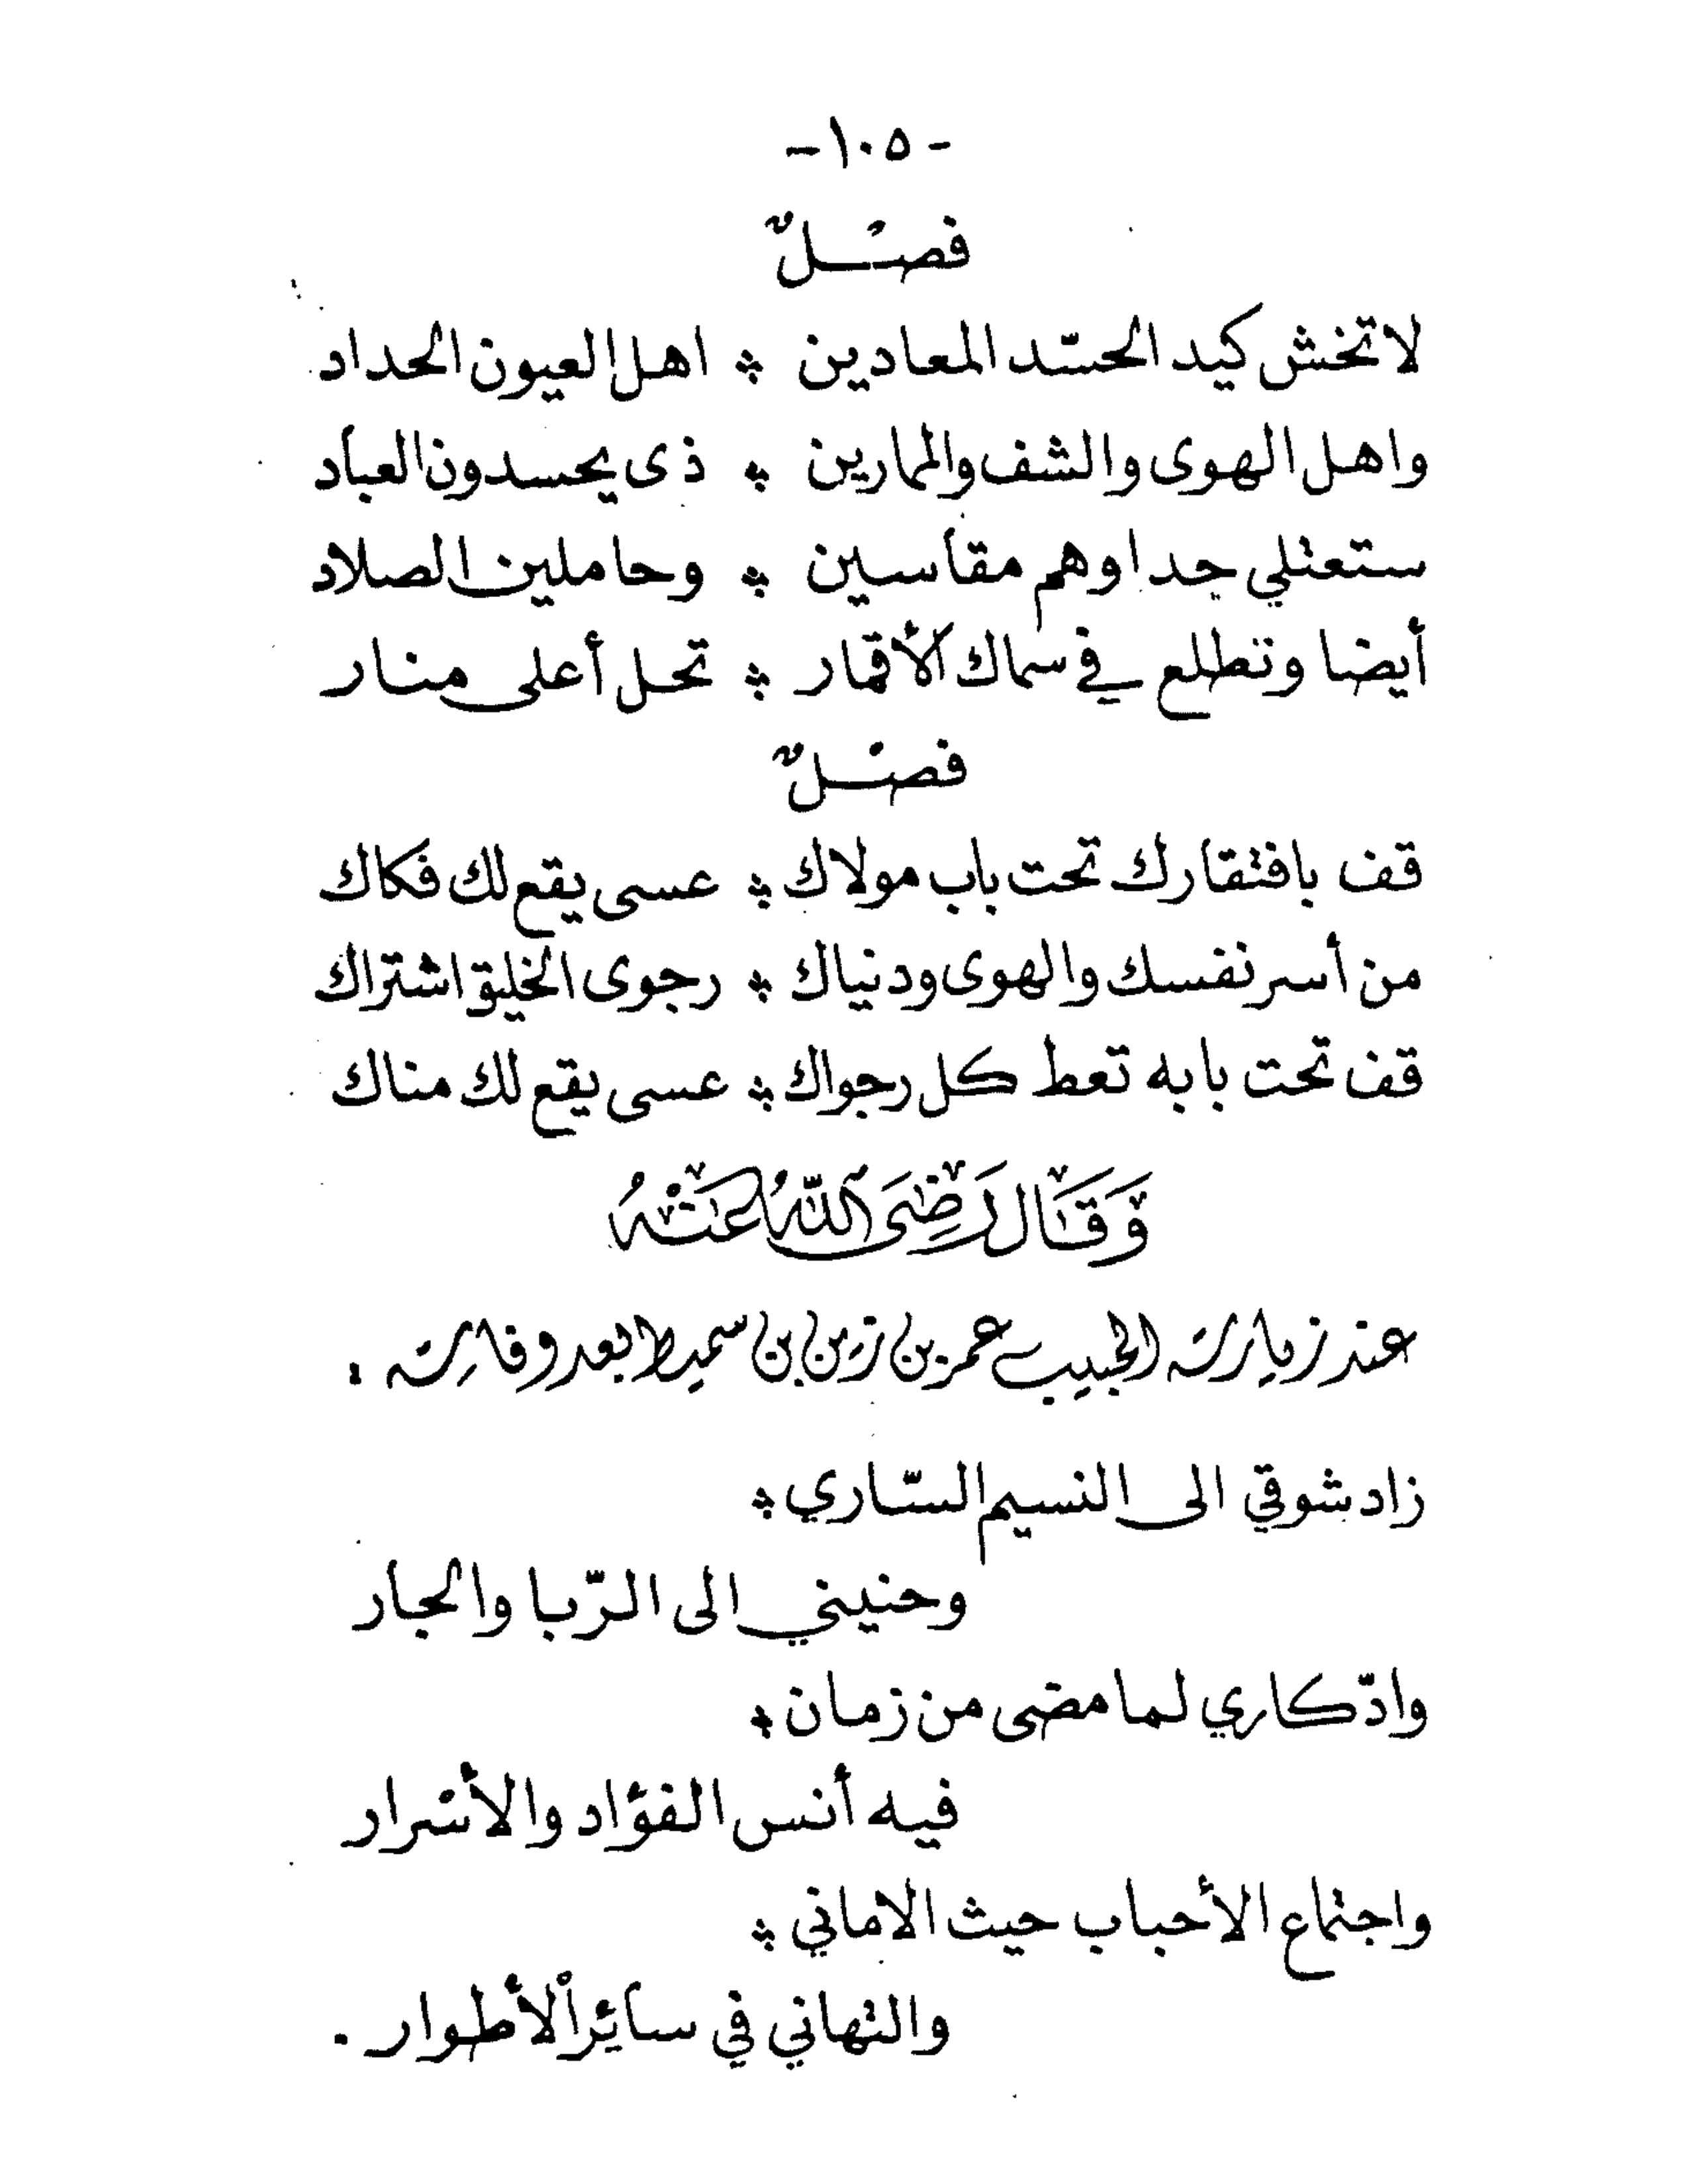 -١٠٥-
فصْلٌ
لا تخش كيد الحسّد المعادين ※ اهل العيون الحداد
واهل الهوى والشف والممارين ※ ذى يحسدون العباد
ستعتلي جدا وهم مقاسين ※ وحاملين الصلاد
أيضا وتطلع في سماك الأقمار ※ تحل أعلى منار
فصْلٌ
قف بافتقارك تحت باب مولاك ※ عسى يقع لك فكاك
من أسر نفسك والهوى ودنياك ※ رجوى الخليق اشتراك
قف تحت بابه تعط كل رجواك ※ عسى يقع لك مناك
وَقَالَ رَضِىَ اللّٰهُ عَنْهُ
عند زيارته الحبيب عمر بن زين بن سميط بعد وفاته :
زاد شوقي الى النسيم السّاري ※
وحنيني الى الرّبا والجار
وادّكاري لما مضى من زمان ※
فيه أنس الفؤاد والأسْرار
واجتماع الأحباب حيث الاماني ※
والتهاني في سائر الأطوار .